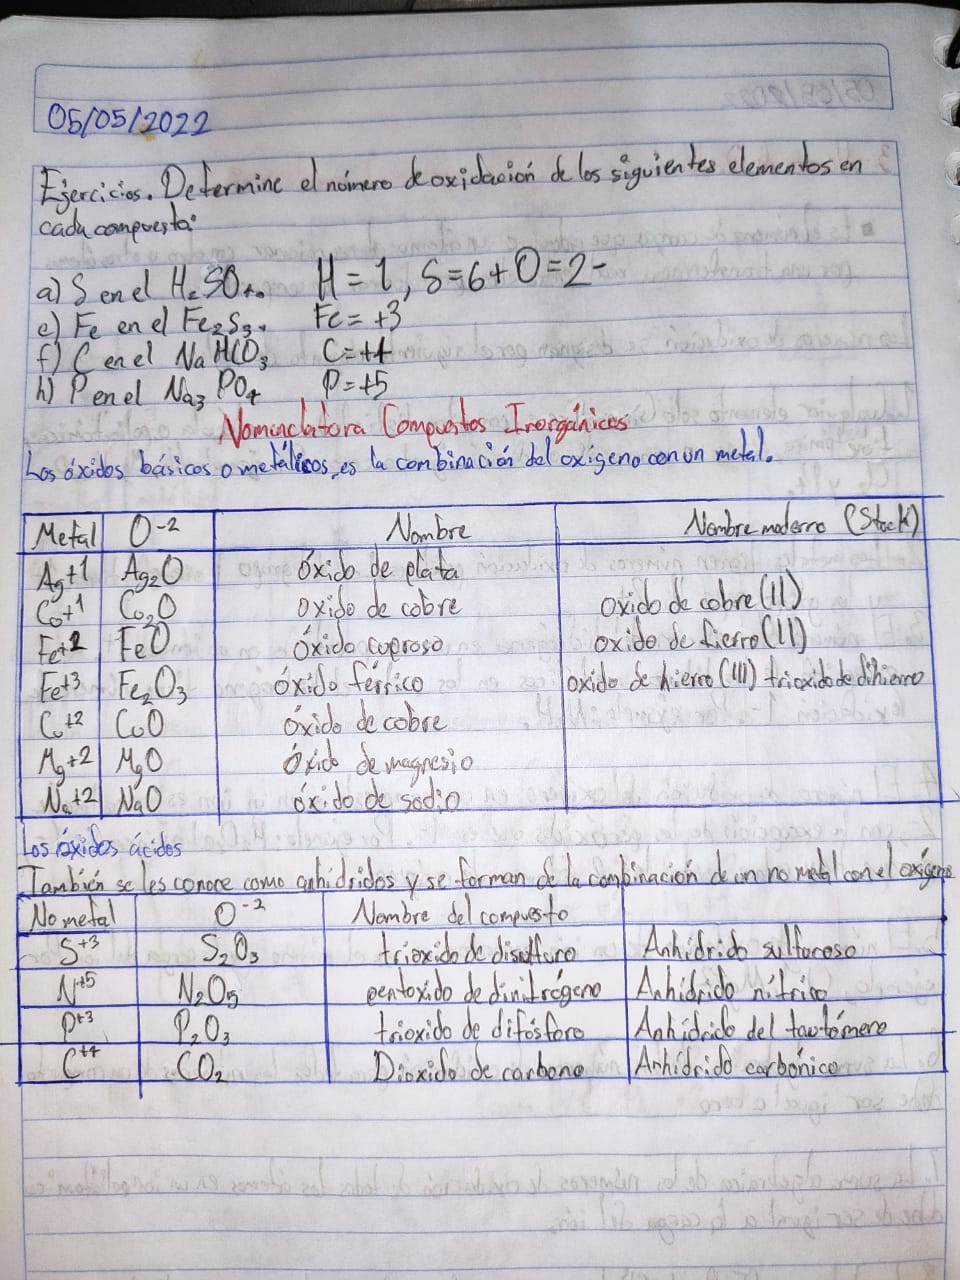 05/05/2022
Ejercicios. Determine el número de oxidación de los siguientes elementos en
cada compuesto:
a) S en el H₂SO₄. H = 1, S = 6+ O = 2-
e) Fe en el Fe₂S₃. Fe = +3
f) C en el NaHCO₃ C = +4
h) P en el Na₃PO₄ P = +5
Nomenclatura Compuestos Inorgánicos
Los óxidos básicos o metálicos, es la combinación del oxígeno con un metal.
Metal O⁻² Nombre Nombre moderno (Stock)
Ag+1 Ag₂O óxido de plata
Cu+1 Cu₂O oxido de cobre oxido de cobre (II)
Fe+2 FeO óxido cuproso oxido de fierro (II)
Fe+3 Fe₂O₃ óxido férrico oxido de hierro (III) trioxido de dihierro
Cu+2 CuO óxido de cobre
Mg+2 MgO óxido de magnesio
Na+2 NaO óxido de sodio
Los óxidos ácidos
También se les conoce como anhidridos y se forman de la combinación de un no metal con el oxígeno
No metal O⁻² Nombre del compuesto
S⁺³ S₂O₃ trioxido de disulfuro Anhídrido sulfuroso
N⁺⁵ N₂O₅ pentoxido de dinitrógeno Anhídrido nítrico
P⁺³ P₂O₃ trioxido de difósforo Anhídrido del
C⁺⁴ CO₂ Dióxido de carbono Anhídrido carbónico